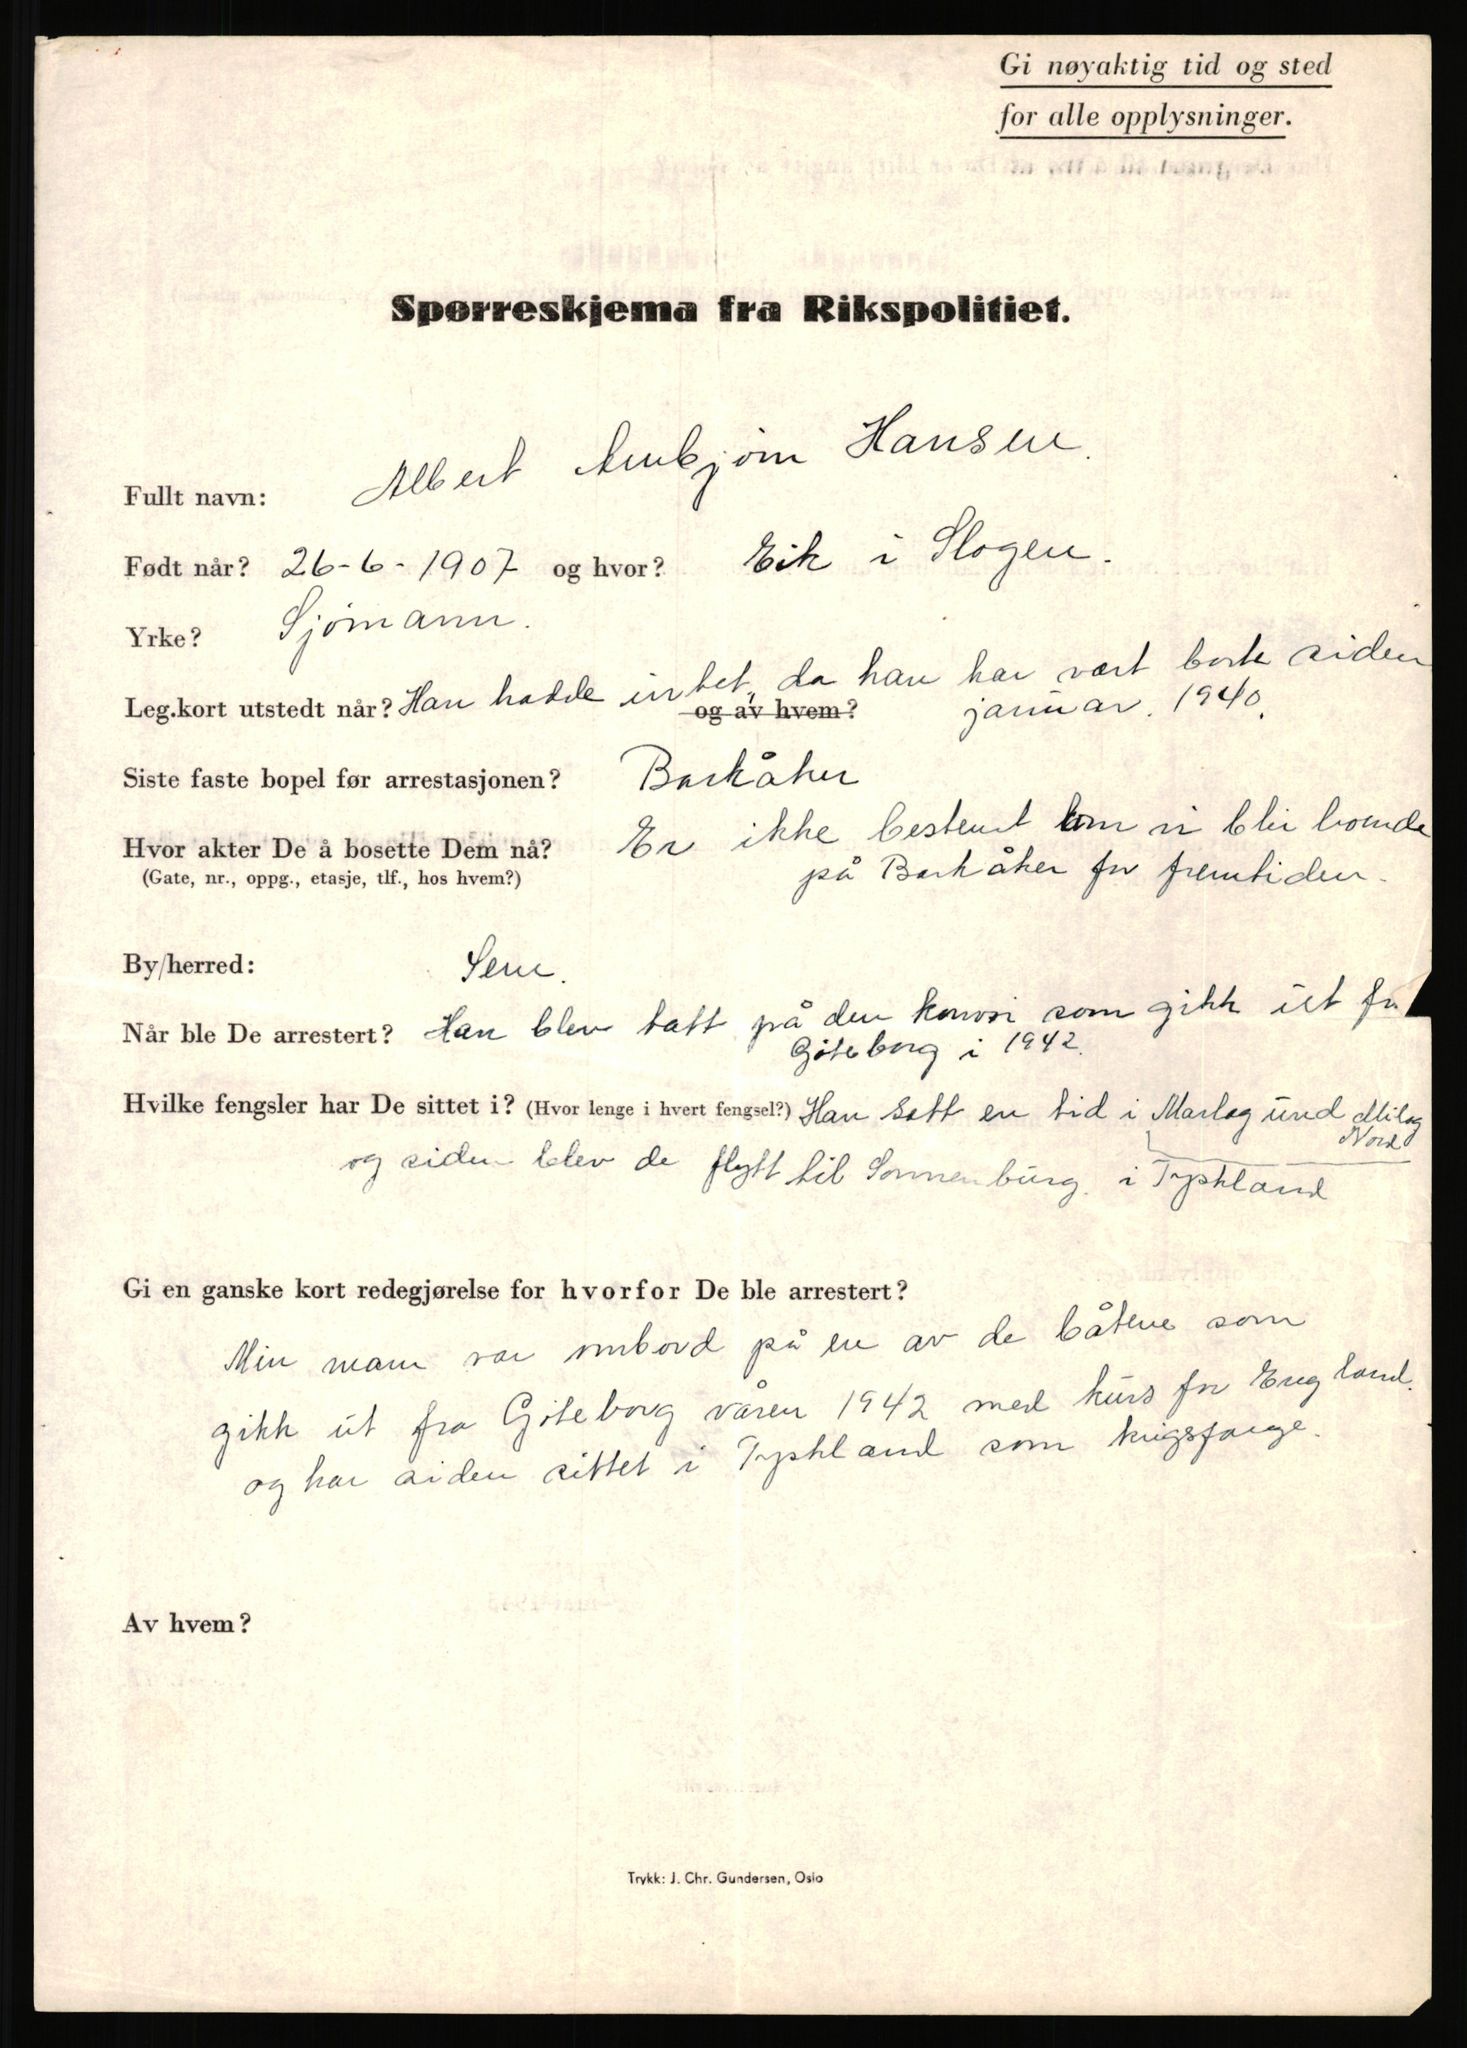 Gi nøyaktig tid og sted
for alle opplysninger.
Spørreskjema fra Rikspolitiet.
Fullt navn: Albert Arnbjørn Hansen.
Født når? 26-6-1907 og hvor? Eik i Slagen.
Yrke? Sjømann.
Leg.kort utstedt når? Han hadde intet, da han har vært borte siden
og av hvem? januar. 1940.
Siste faste bopel før arrestasjonen? Barkåker
Hvor akter De å bosette Dem nå? Er ikke bestemt om vi blir boende
(Gate, nr., oppg., etasje, tlf., hos hvem?) på Barkåker for fremtiden.
By/herred: Sem.
Når ble De arrestert? Han blev tatt på den konvoi som gikk ut fra
Göteborg i 1942.
Hvilke fengsler har De sittet i? (Hvor lenge i hvert fengsel?) Han satt en tid i Marlag und Milag
Nord
og siden blev de flytt til Sonnenburg. i Tyskland
Gi en ganske kort redegjørelse for hvorfor De ble arrestert?
Min mann var ombord på en av de båtene som
gikk ut fra Göteborg våren 1942 med kurs for England.
og har siden sittet i Tyskland som krigsfange.
Av hvem?
Trykk: J. Chr. Gundersen, Oslo